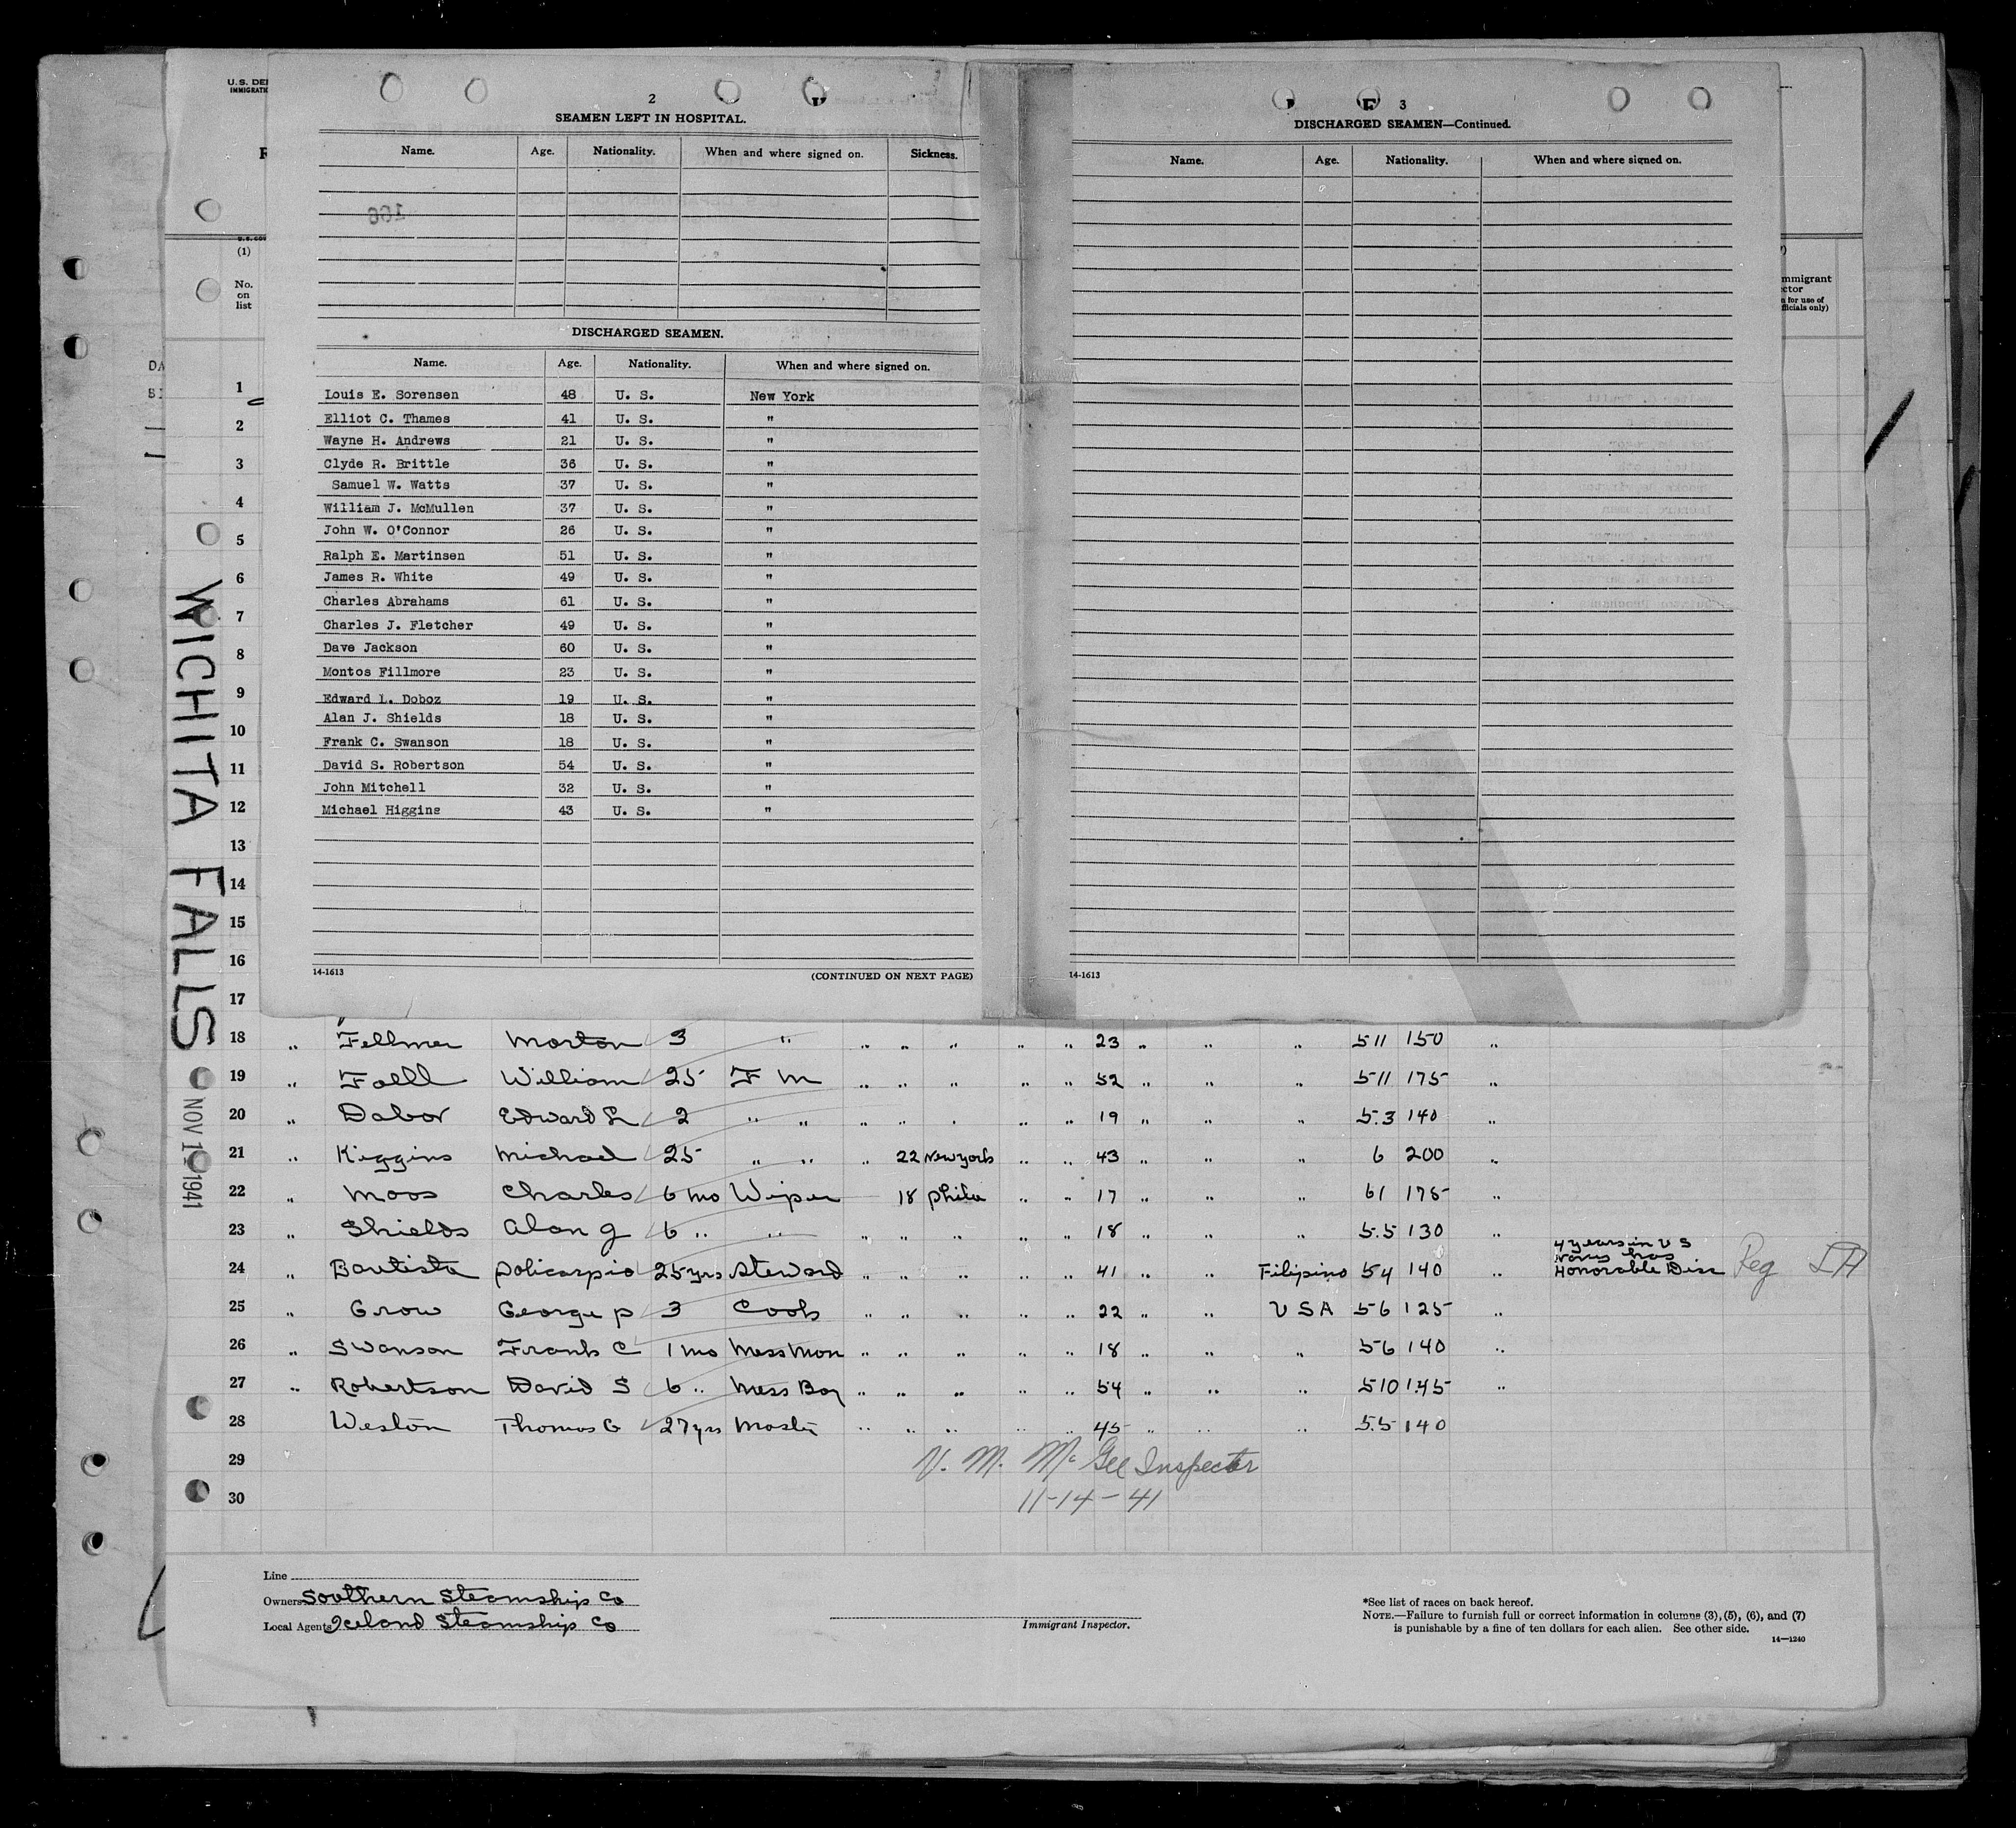 U. S. DEP
IMMIGRATI
F
(1)
No.
on
list
2
SEAMEN LEFT IN HOSPITAL.
Name. Age. Nationality. When and where signed on. Sickness.
166
DISCHARGED SEAMEN.
Name. Age. Nationality. When and where signed on.
Louis E. Sorensen 48 U. S. New York
Elliot C. Thames 41 U. S. "
Wayne H. Andrews 21 U. S. "
Clyde R. Brittle 36 U. S. "
Samuel W. Watts 37 U. S. "
William J. McMullen 37 U. S. "
John W. O'Connor 26 U. S. "
Ralph E. Martinsen 51 U. S. "
James R. White 49 U. S. "
Charles Abrahams 61 U. S. "
Charles J. Fletcher 49 U. S. "
Dave Jackson 60 U. S. "
Montos Fillmore 23 U. S. "
Edward L. Doboz 19 U. S. "
Alan J. Shields 18 U. S. "
Frank C. Swanson 18 U. S. "
David S. Robertson 54 U. S. "
John Mitchell 32 U. S. "
Michael Higgins 43 U. S. "
14-1613 (CONTINUED ON NEXT PAGE)
3
DISCHARGED SEAMEN—Continued.
Name. Age. Nationality. When and where signed on.
14-1613
mmigrant
ctor
n for use of
fficials only)
DA
SI
1
2
3
4
5
6
7
8
9
10
11
12
13
14
15
16
17
WICHITA FALLS
NOV 1 1941
18 " Fellmer Morton 3 " " " " " " 23 " " " 5 11 150 "
19 " Faell William 25 F M " " " " " 52 " " " 5 11 175 "
20 " Dabor Edward L 2 " " " " " " " 19 " " " 5.3 140 "
21 " Kiggins Michael 25 " " " 22 New York " " 43 " " " 6 200 "
22 " Moos Charles 6 mo Wiper 18 Phila " " 17 " " " 6 1 175 "
23 " Shields Alan J 6 " " " " " " " 18 " " " 5.5 130 "
24 " Bautista Policarpio 25 yrs Steward " " " " " 41 " " Filipino 5 4 140 " 4 years in U S Navy has Honorable Disc Reg
25 " Grow George P 3 Cook " " " " " 22 " " U S A 5 6 125 "
26 " Swanson Frank C 1 mo Mess Man " " " " " 18 " " " 5 6 140 "
27 " Robertson David S 6 " Mess Boy " " " " " 54 " " " 5 10 145 "
28 Weston Thomas G 27 yrs Master " " " " " 45 " " " 5.5 140
29 V. M. McGee Inspector
30 11-14-41
Line
Owners Southern Steamship Co
Local Agents Iceland Steamship Co
Immigrant Inspector.
*See list of races on back hereof.
NOTE.—Failure to furnish full or correct information in columns (3), (5), (6), and (7)
is punishable by a fine of ten dollars for each alien. See other side.
14—1240